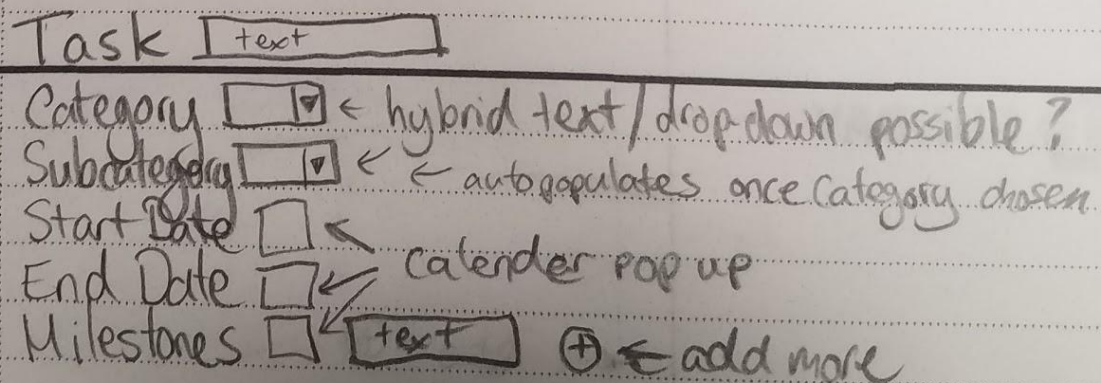 Task text
Category ← hybrid text/dropdown possible?
Subcategory ← ← autopopulates once Category chosen
Start Date
End Date calender pop up
Milestones text + ← add more